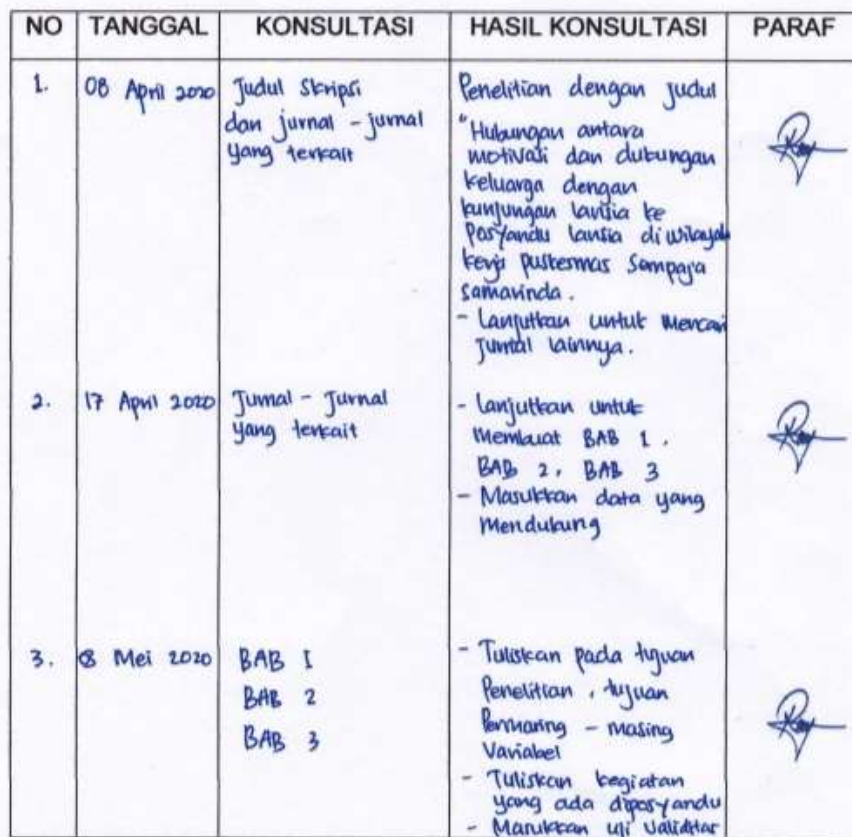 NO TANGGAL KONSULTASI HASIL KONSULTASI PARAF
1. 08 April 2020 Judul Skripsi Penelitian dengan judul
dan jurnal - jurnal "Hubungan antara
yang terkait motivasi dan dukungan
keluarga dengan
kunjungan lansia ke
Posyandu lansia di wilayah
kerja puskesmas Sempaja
Samarinda.
- Lanjutkan untuk mencari
jurnal lainnya.
2. 17 April 2020 Jurnal - Jurnal - lanjutkan untuk
yang terkait membuat BAB 1,
BAB 2, BAB 3
- Masukkan data yang
mendukung
3. 8 Mei 2020 BAB I - Tuliskan pada tujuan
BAB 2 Penelitian, tujuan
BAB 3 Permasing - masing
Variabel
- Tuliskan kegiatan
yang ada diposyandu
- Masukkan uji validitas